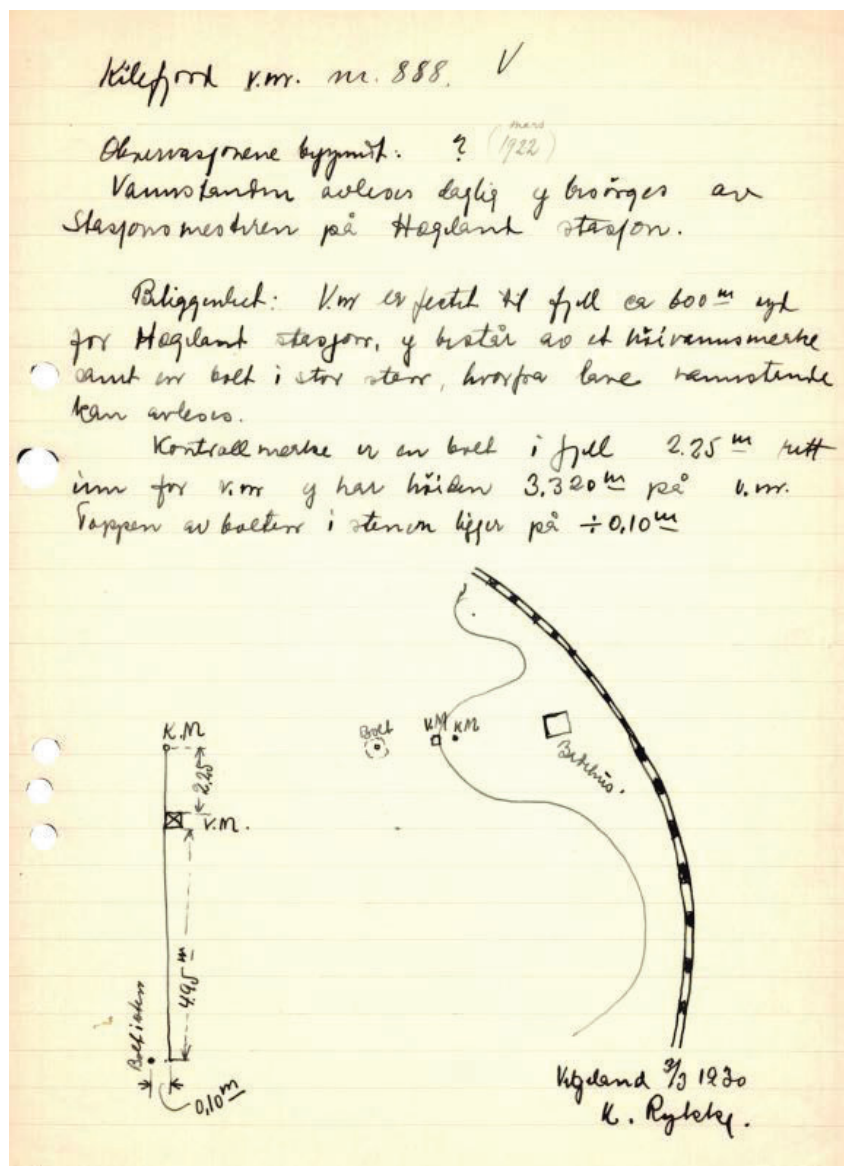 Kilefjord v.m. nr. 888. V
Observasjonene begynnt: ? (mars 1922)
Vannstanden avleses daglig og besörges av
Stasjonsmesteren på Hægeland stasjon.
Beliggenhet: V.m er festet til fjell ca 600 m syd
for Hægeland stasjon, og består av et höivannsmerke
samt en bolt i stor sten, hvorfra lave vannstande
kan avleses.
Kontrollmerke er en bolt i fjell 2.25 m rett
inn for v.m og har höiden 3.320 m på v.m.
Toppen av bolten i stenen ligger på ÷ 0,10 m
K.M
2,25
V.M.
4.95 m
Bolt i sten
0,10 m
Bolt
V.M K.M
3/3 1930
K.